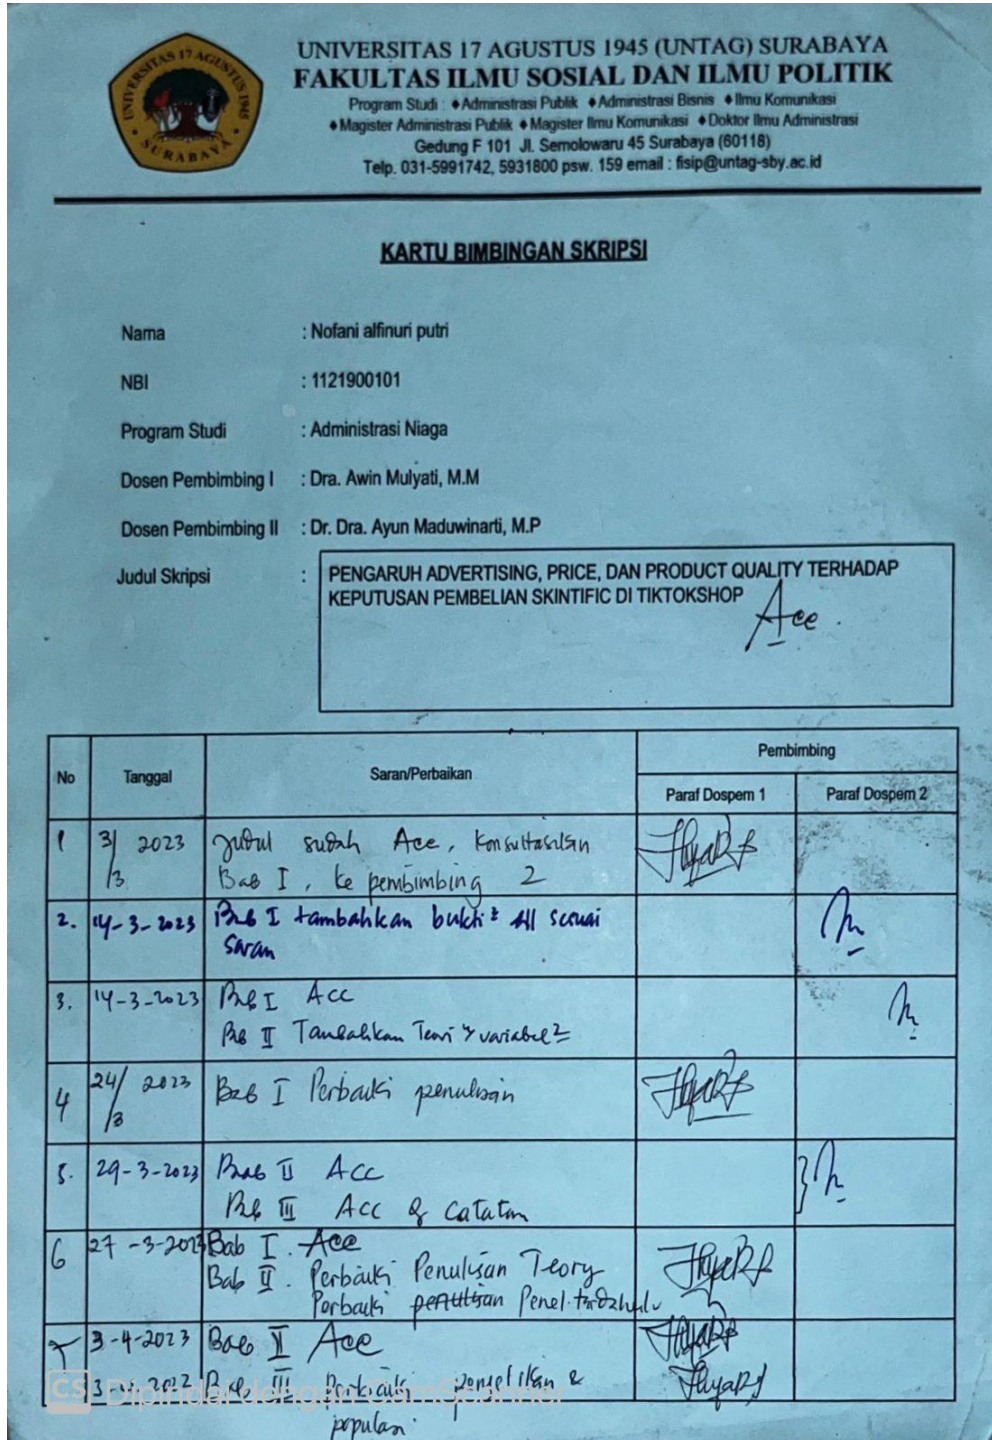 UNIVERSITAS 17 AGUSTUS 1945
SURABAYA
UNIVERSITAS 17 AGUSTUS 1945 (UNTAG) SURABAYA
FAKULTAS ILMU SOSIAL DAN ILMU POLITIK
Program Studi : ♦Administrasi Publik ♦Administrasi Bisnis ♦Ilmu Komunikasi
♦Magister Administrasi Publik ♦Magister Ilmu Komunikasi ♦Doktor Ilmu Administrasi
Gedung F 101 Jl. Semolowaru 45 Surabaya (60118)
Telp. 031-5991742, 5931800 psw. 159 email : fisip@untag-sby.ac.id
KARTU BIMBINGAN SKRIPSI
Nama : Nofani alfinuri putri
NBI : 1121900101
Program Studi : Administrasi Niaga
Dosen Pembimbing I : Dra. Awin Mulyati, M.M
Dosen Pembimbing II : Dr. Dra. Ayun Maduwinarti, M.P
Judul Skripsi : PENGARUH ADVERTISING, PRICE, DAN PRODUCT QUALITY TERHADAP
KEPUTUSAN PEMBELIAN SKINTIFIC DI TIKTOKSHOP
Acc.
No Tanggal Saran/Perbaikan Pembimbing
Paraf Dospem 1 Paraf Dospem 2
1 3/3 2023 Judul sudah Acc, Konsultasikan
Bab I, ke pembimbing 2
2. 14-3-2023 Bab I tambahkan bukti² sesuai
saran
3. 14-3-2023 Bab I Acc
Bab II Tambahkan Teori variabel²
4 24/3 2023 Bab I Perbaiki penulisan
5. 29-3-2023 Bab II Acc
Bab III Acc & catatan
6 27-3-2023 Bab I. Acc
Bab II. Perbaiki Penulisan Teory
Perbaiki penulisan Penel. terdahulu
7 3-4-2023 Bab II Acc
Bab III Perbaiki &
populasi.
CS Dipindai dengan CamScanner